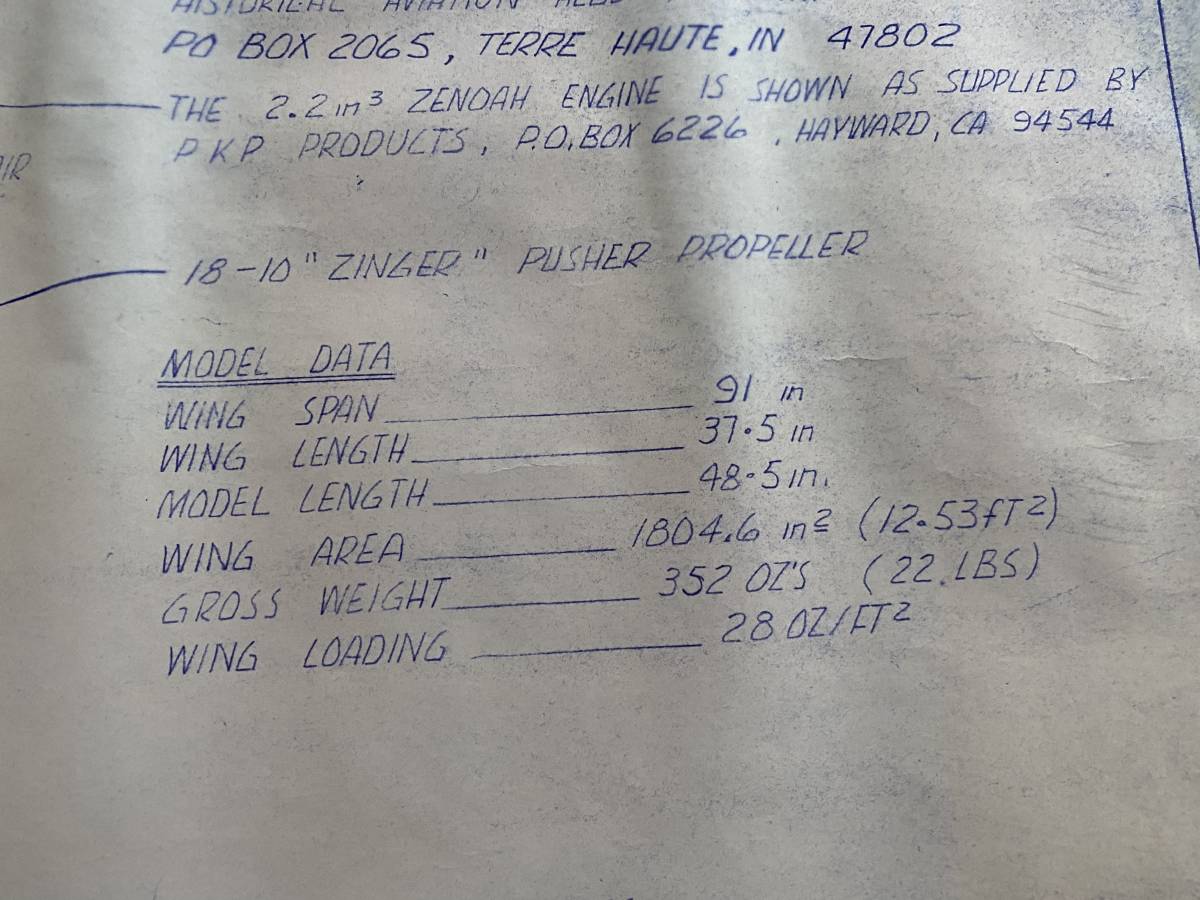 HISTORICAL AVIATION
PO BOX 2065, TERRE HAUTE, IN 47802
THE 2.2 in³ ZENOAH ENGINE IS SHOWN AS SUPPLIED BY
PKP PRODUCTS, P.O. BOX 6226, HAYWARD, CA 94544
18-10 "ZINGER" PUSHER PROPELLER
MODEL DATA
WING SPAN 91 in
WING LENGTH 37.5 in
MODEL LENGTH 48.5 in.
WING AREA 1804.6 in² (12.53 fT²)
GROSS WEIGHT 352 OZ'S (22. LBS)
WING LOADING 28 OZ/FT²